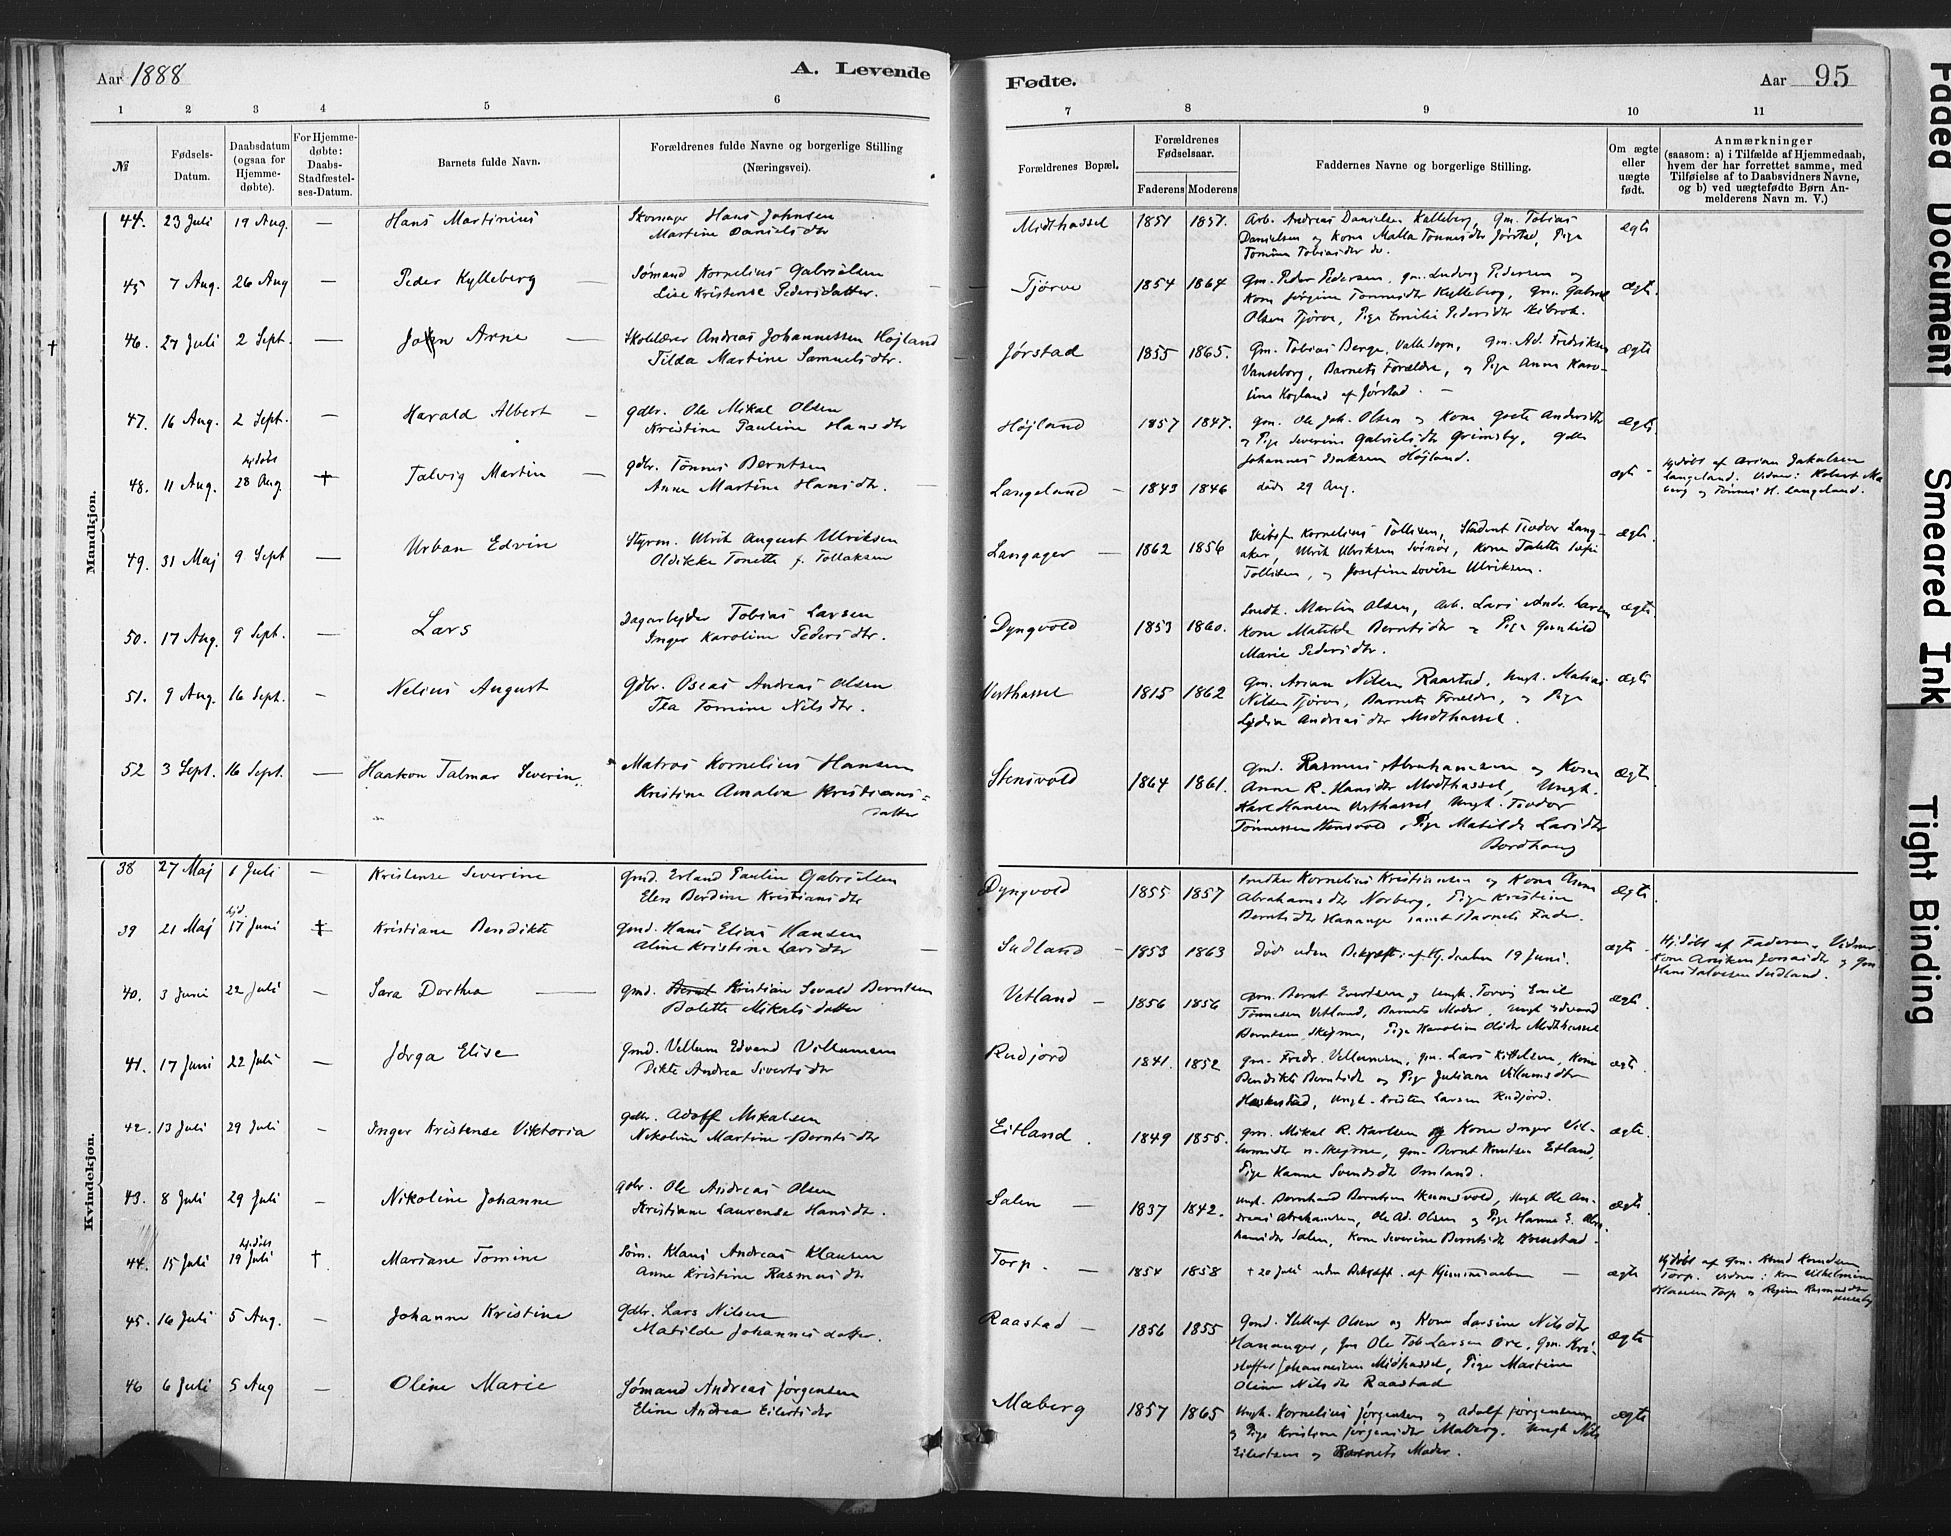 Aar 1888
A. Levende
Fødte.
Aar 95
1 2 3 4 5 6 7 8 9 10 11
№
Fødsels-
Datum.
Daabsdatum
(ogsaa for
Hjemme-
døbte).
For Hjemme-
døbte:
Daabs-
Stadfæstel-
ses-Datum.
Barnets fulde Navn.
Forældrenes fulde Navne og borgerlige Stilling
(Næringsvei).
Forældrenes Bopæl.
Forældrenes
Fødselsaar.
Faderens Moderens
Faddernes Navne og borgerlige Stilling.
Om ægte
eller
uægte
født.
Anmærkninger
(saasom: a) i Tilfælde af Hjemmedaab,
hvem der har forrettet samme, med
Tilføielse af to Daabsvidners Navne,
og b) ved uægtefødte Børn An-
melderens Navn m. V.)
Mandkjøn.
44. 23 Juli 19 Aug. — Hans Martinius
Hans Johnsen
Martine Danielsdtr
Midthassel 1851 1857.
Arb. Andreas Danielsen Kalleberg, Gm. Tobias
Danielsen og Kone Malla Tønnesdtr Jørstad, Pige
Tomine Tobiasdtr do.
ægte
45 7 Aug. 26 Aug — Peder Kylleberg
Sømand Kornelius Gabrielsen
Lise Kristense Pedersdatter.
Tjørve 1854 1864
Gm. Peder Pedersen, gm. Ludvig Pedersen og
Kone Jørgine Tønnesdtr Kylleberg, gm. Gabriel
Olsen Tjørve, Pige Emilie Pedersdtr
ægte.
†
46. 27 Juli 2 Sept. — John Arne
Andreas Johannessen Højland
Tilda Martine Samuelsdtr.
Jørstad 1855 1865.
Gm. Tobias Berge, Valle Sogn, gm. Ad. Fredriksen
Vanseborg, Barnets Forældre, og Pige Anna Karo-
line Høgland af Jørstad. —
ægte
47. 16 Aug. 2 Sept. — Harald Albert —
gdbr. Ole Mikal Olsen
Kristine Pauline Hansdtr
Højland 1857 1847.
gm. Ole Joh. Olsen og Kone Andersdtr
og Pige Severine Gabrielsdtr Grimsby, Gdbr
Johannes Isaksen Højland.
ægte.
48. 11 Aug. hjdøbt 28 Aug. † Talvig Martin —
gdbr. Tønnes Berntsen
Anne Martine Hansdtr. —
Langeland — 1843 1846
døde 29 Aug.
ægte -
Hjdøbt af Arian Jakobsen
Langeland. Vidner:
og Tønnes H. Langeland.
49. 31 Maj 9 Sept — Urban Edvin
Styrm. Ulrik August Ulriksen
Tonette f. Tollaksen
Langager — 1862 1856
Kornelius Tollisen, Student Teodor Lang-
aker, Ulrik Ulriksen Kone Talette
Tollisen, og Josefine Lovise Ulriksen.
ægte.
50. 17 Aug. 9 Sept. — Lars
Dagarbejder Tobias Larsen
Inger Karoline Pedersdtr.
Dyngvold 1853 1860.
Martin Olsen, Arb. Lars Andr. Larsen
Kone Matilde Berntsdtr og Pige Gunhild
Marie Pedersdtr.
ægte
51. 9 Aug. 16 Sept. — Nelius August
Gdbr. Oseas Andreas Olsen
Tea Tomine Nilsdtr.
Vesthassel 1815 1862
gm. Arian Nilsen Raastad, Ungk. Matias
Nilsen Tjørve, Barnets Forældre, og Pige
Lydia Andreasdtr Midthassel.
ægte
52 3 Sept. 16 Sept. — Haakon Talmar Severin.
Matros Kornelius Hansen
Kristine Amalva Kristians-
datter
Stensvold 1864 1861.
Gmd. Rasmus Abrahamsen og Kone
Anne R. Hansdtr Midthassel, Ungk.
Karl Hansen Vesthassel Ungk. Teodor
Tønnessen Stensvold, Pige Matilde Larsdtr
Bordhaug
ægte.
Kvindekjøn.
38 27 Maj 1 Juli — Kristense Severine
Gmd. Erland Paulin Gabrielsen
Elen Berdine Kristiansdtr
Dyngvold 1855 1857
Kornelius Kristiansen og Kone Anne
Abrahamsdtr Norberg, Pige Kristine
Berntsdtr Hananger samt Barnets Fader.
ægte.
39 21 Maj hjd. 17 Juni † Kristiane Bendikte
Gmd. Hans Elias Hansen
Aline Kristine Larsdtr —
Sudland — 1853 1863
død uden Bekræft. af Hj.daaben 19 Juni.
ægte -
Hjdøbt af Faderen. Vidner:
Kone og Gm.
Hans Salvesen Sudland.
40. 3 Juni 22 Juli — Sara Dorthea
gmd. Bernt Kristian Sevald Berntsen
Bolette Mikalsdatter
Vetland — 1856 1856
Gm. Bernt Evertsen, og Ungk. Torvig Emil
Tønnesen Vetland, Barnets Moder, Ungk Edvard
Berntsen Skejme, Pige Karoline Olsdtr Midthassel
ægte
41. 17 Juni 22 Juli — Jørga Elise
Gmd. Vellum Edvard Villumsen
Dikte Andrea Sivertsdtr
Rudjord 1841. 1852
gm. Fredr. Villumsen, gm. Lars Kittelsen, Kone
Bendikte Berntsdtr og Pige Juliane Villumsdtr
Haskestad, Ungk. Kristen Larsen Rudjord.
ægte.
42. 13 Juli 29 Juli — Inger Kristense Viktoria
Gdbr. Adolf Mikalsen
Nikoline Martine Berntsdtr
Eitland. 1849 1855.
gm. Mikal R. Karlsen og Kone Inger Vil-
lumsdtr n. Skejme, gm. Bernt Knutsen Eitland,
Pige Hanne Svendsdtr Omland.
ægte.
43. 8 Juli 29 Juli — Nikoline Johanne
gdbr. Ole Andreas Olsen
Kristiane Laurense Hansdtr.
Salen — 1837 1842.
Ungk. Bernhard Berntsen Ungk Ole An-
dreas Abrahamsen, Ole Ad. Olsen og Pige Hanne E. Abra-
hamsdtr Salen, Kone Severine Berntsdtr
ægte.
44. 15 Juli hjdøbt 19 Juli † Mariane Tomine
Søm. Klaus Andreas Klausen
Anne Kristine Rasmusdtr
Torp. — 1854 1858
† 20 Juli uden Bekræft. af Hjemmedaaben —
ægte
Hjdøbt af Gm. Knud Knudsen
Torp. Vidner: Kone Vilhelmine
Klausen Torp og Regine Rasmusdtr
45. 16 Juli 5 Aug. — Johanne Kristine
Gdbr. Lars Nilsen
Matilde Johannesdatter.
Raastad — 1856 1855
Gmd. Olsen og Kone Larsine Nilsdtr
Hananger, Gm Ole Tob. Larsen Ore, Gm. Kri-
stoffer Johannessen Midthassel, Pige Martine
Oline Nilsdtr Raastad
ægte
46 6 Juli 5 Aug — Oline Marie
Sømand Andreas Jørgensen
Eline Andrea Eilertsdtr
Maberg 1857 1865
Ungk. Kornelius Jørgensen og Adolf Jørgensen
og Pige Kristine Jørgensdtr Maberg. Ungk Nils
Eilertsen og Barnets Moder.
ægte
Faded Document
Smeared Ink
Tight Binding